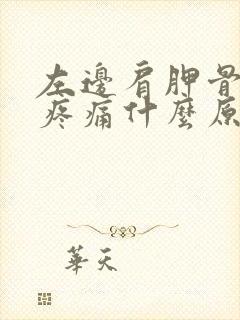 左邊肩胛骨
疼痛什麼原
華天